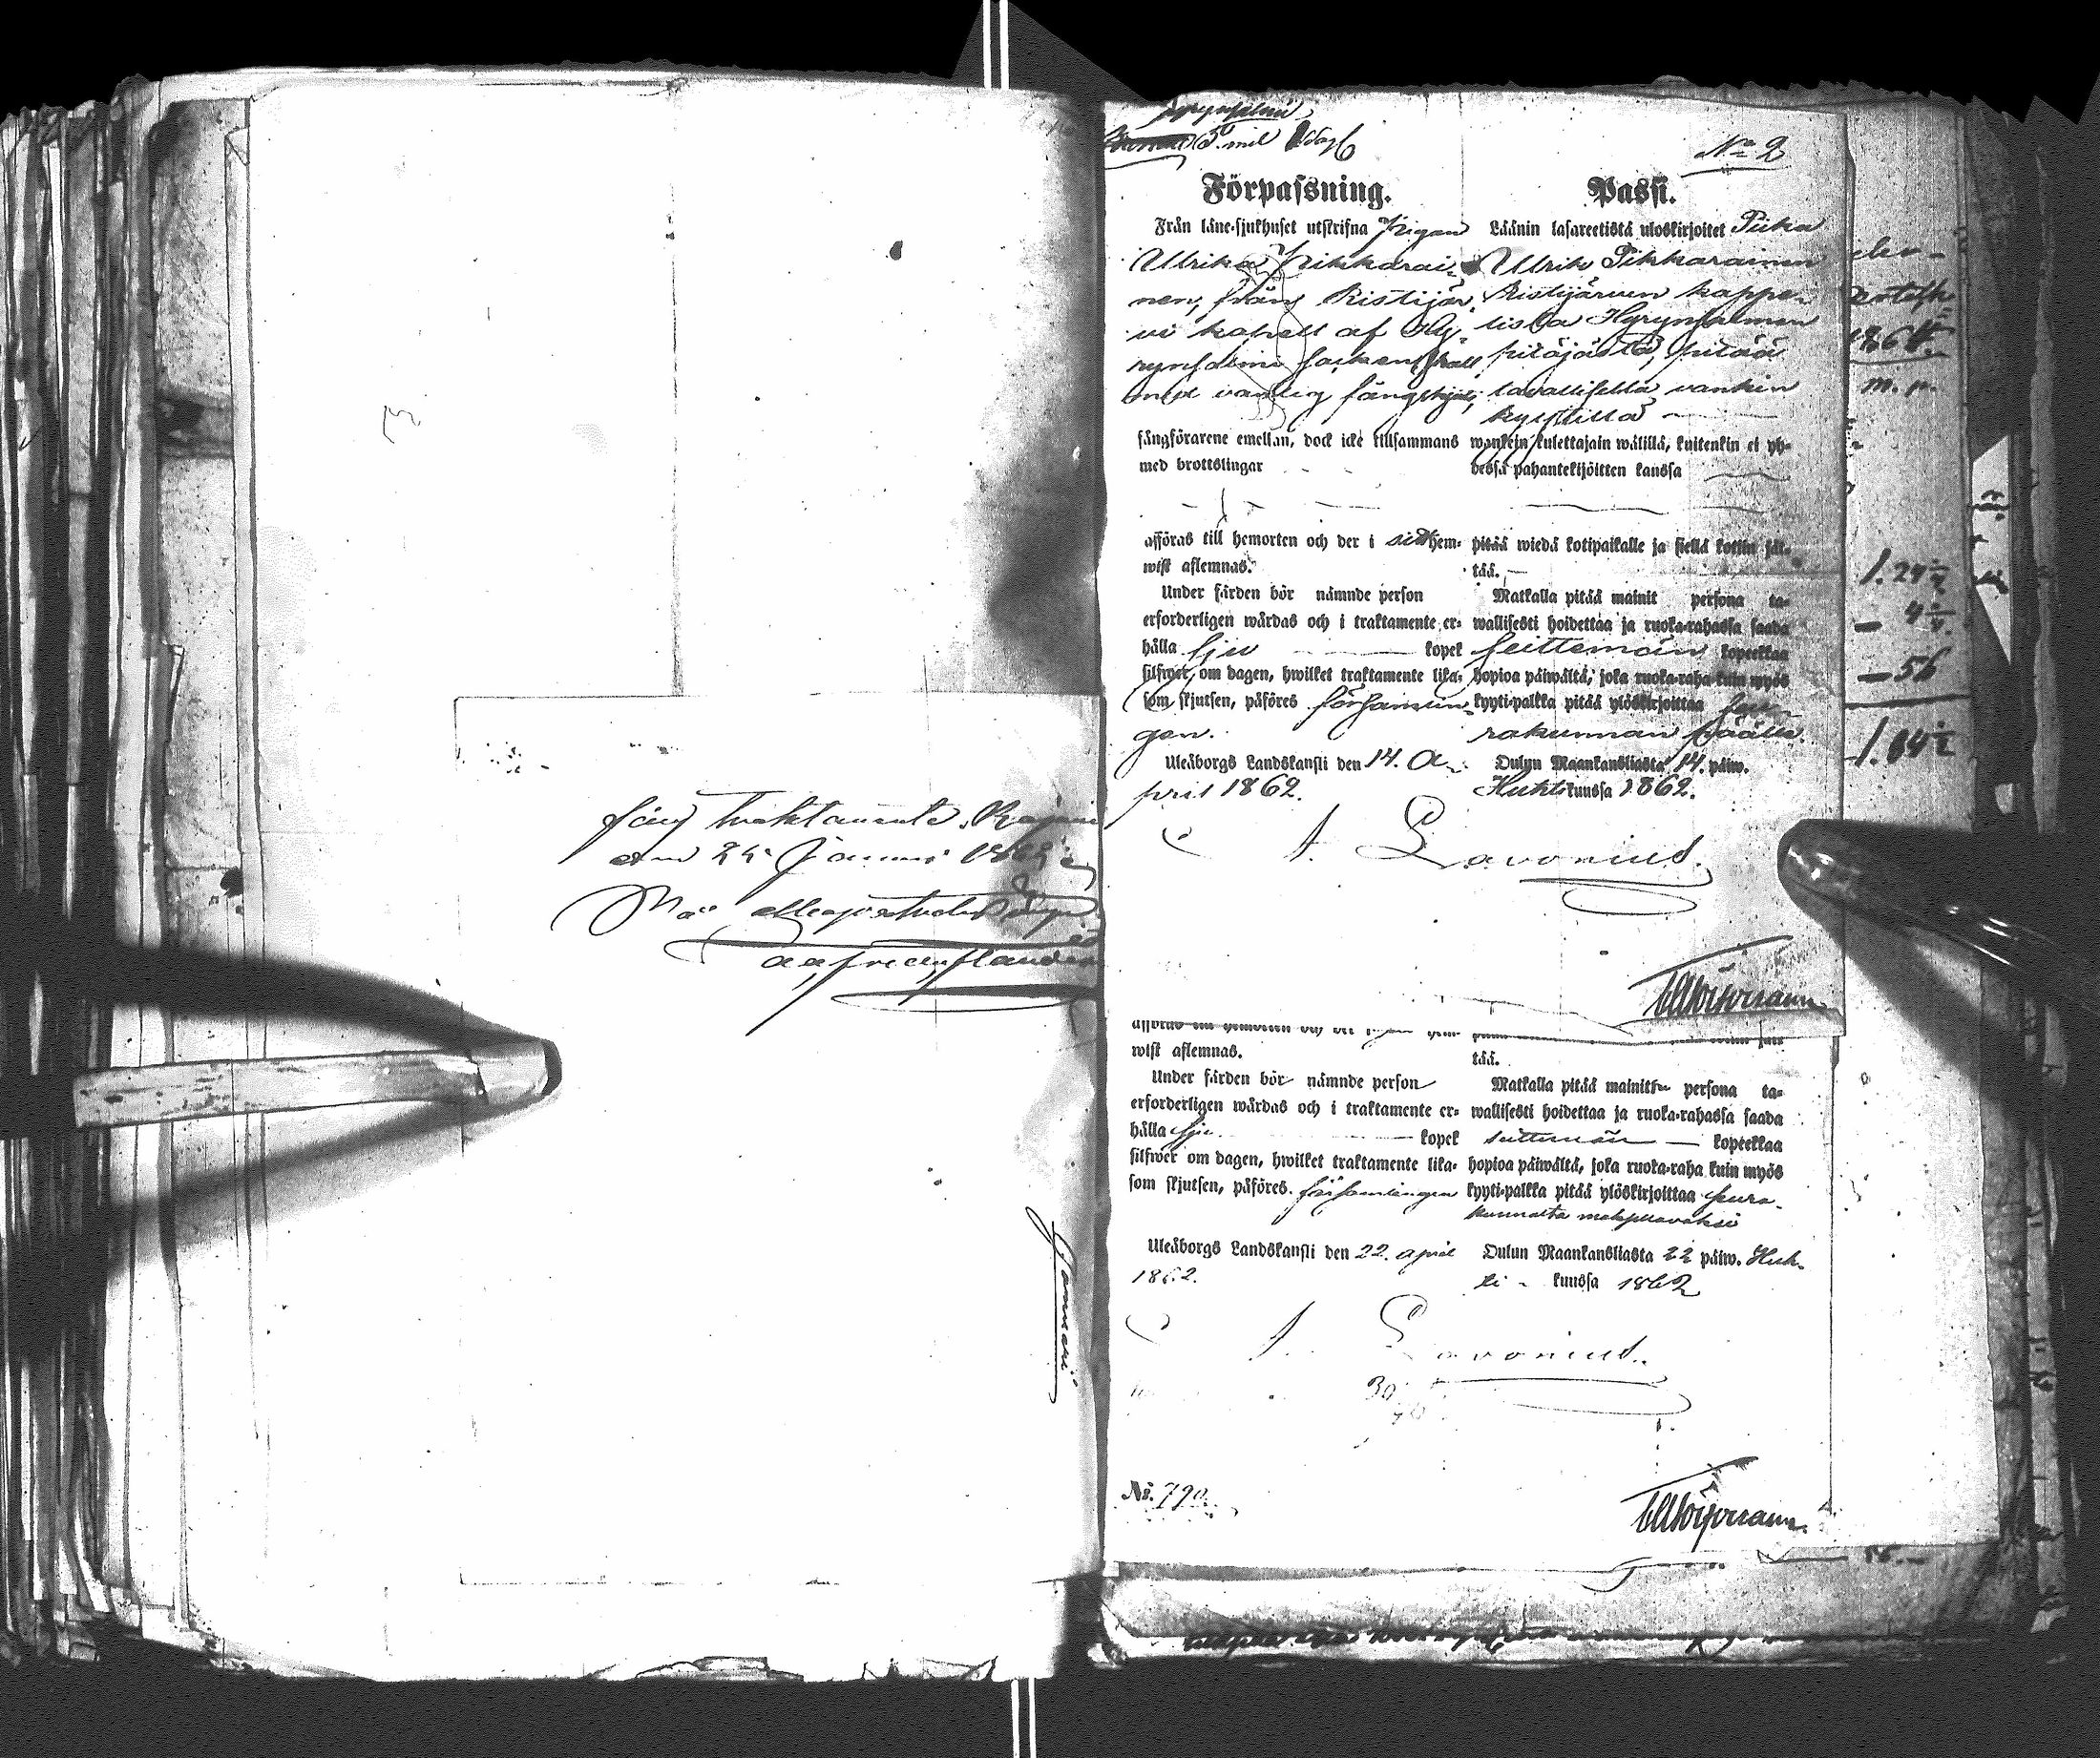 fång traktamente. Kajana
den 25 Januari
Hyrynsalmi
5 mil
No 2
Förpassning.
Från läne-sjukhuset utskrifna Pigan
Ulrika Pikkarai-
nen, från Ristijär-
vi kapell af Hy-
rynsalmi socken skall
med vanlig fångskjuts,
fångförarene emellan, dock icke tillsammans
med brottslingar
afföras till hemorten och der i sitt hem-
wist aflemnas.
Under färden bör nämnde person
erforderligen wårdas och i traktamente er-
hålla sju kopek
silfwer om dagen, hwilket traktamente lika-
som skjutsen, påföres församlin-
gen.
Uleåborgs Landskansli den 14. A-
pril 1862.
Passi.
Läänin lasareetistä uloskirjoitet Piika
Ulrik Pikkarainen
Ristijärven kappe-
lista Hyrynsalmen
pitäjästä, pitää
tavallisella vankin
kyytillä
wankein kulettajain wälillä, kuitenkin ei yh-
dessä pahantekijöitten kanssa
pitää wiedä kotipaikalle ja siellä kottin jät-
tää.
Matkalla pitää mainit persona ta-
wallisesti hoidettaa ja ruoka-rahassa saada
seittemän kopeekkaa
hopioa päiwältä, joka ruoka-raha kuin myös
kyyti-palkka pitää ylöskirjoittaa seu-
rakunnan päälle.
Oulun Maankansliasta 14. päiw.
Huhtikuussa 1862.
A. Lavonius.
m. p.
1.24
56
1.64
wist aflemnas.
Under färden bör nämnde person
erforderligen wårdas och i traktamente er-
hålla sju kopek
silfwer om dagen, hwilket traktamente lika-
som skjutsen, påföres församlingen
Uleåborgs Landskansli den 22. april
1862.
tää.
Matkalla pitää mainittu persona ta-
wallisesti hoidettaa ja ruoka-rahassa saada
seittemän kopeekkaa
hopioa päiwältä, joka ruoka-raha kuin myös
kyyti-palkka pitää ylöskirjoittaa seura-
kunnalta maksettavaksi
Oulun Maankansliasta 22 päiw. Huh-
ti- kuussa 1862
A. Lavonius.
No. 790.
Januari